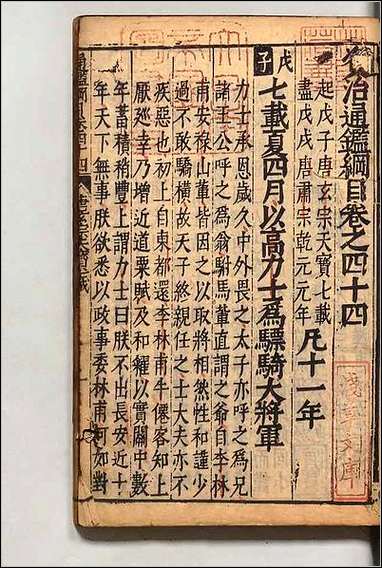 資治通鑑綱目卷之四十四
起戊子唐玄宗天寶七載
盡戊戌唐肅宗乾元元年 凡十一年
戊子
七載夏四月以高力士爲驃騎大將軍
力士承恩歲久中外畏之太子亦呼之爲兄
諸王公呼之爲翁駙馬輩直謂之爺自李林
甫安祿山輩皆因之以取將相然性和謹少
過不敢驕橫故天子終親任之士大夫亦不
疾惡也初上自東都還李林甫牛僊客知上
厭巡幸乃增近道粟賦及和糴以實關中數
年蓄積稍豐上謂力士曰朕不出長安近十
年天下無事朕欲悉以政事委林甫何如對
淺草文庫